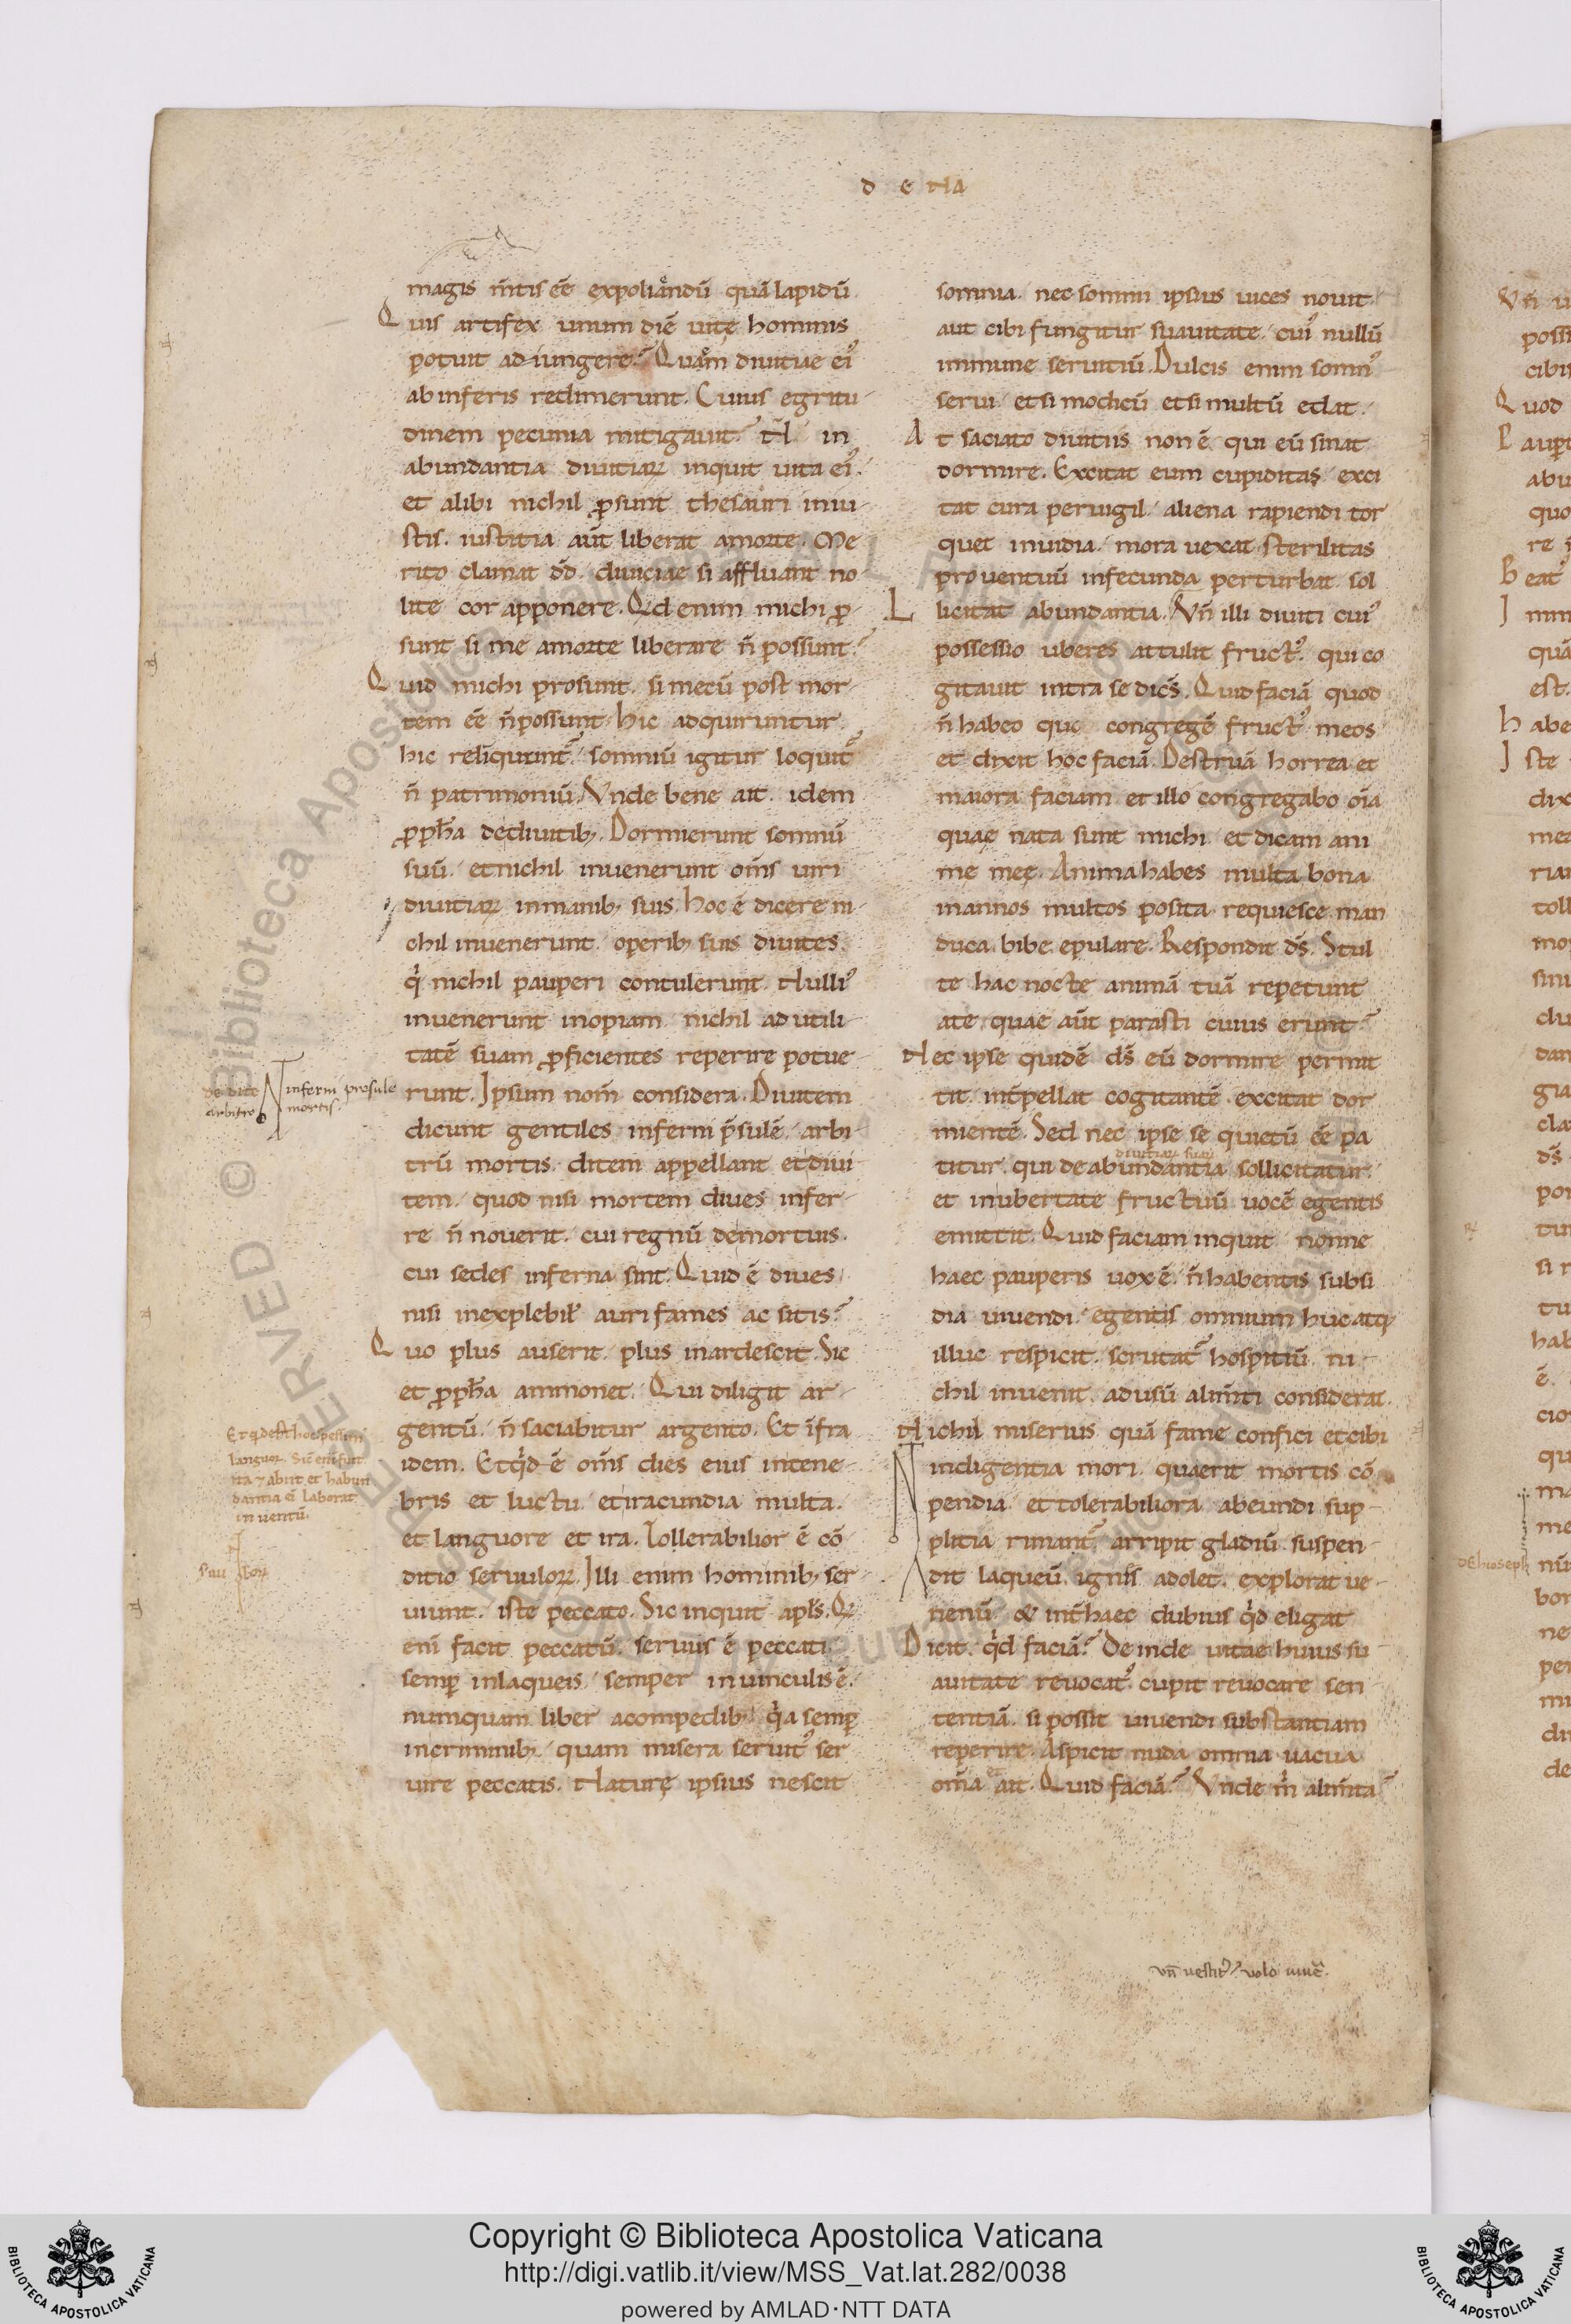 d e NA
magis m̄tis eē expoliandū quā lapidū.
Quis artifex unum diē uitę hominis
potuit adiungere? Quam diuitiae ei᾽
ab inferis redimerunt. Cuius egritu-
dinem pecunia mitigauit? N̄ in
abundantia diuitiaꝝ inquit uita ei᾽.
et alibi nichil ꝓsunt thesauri iniu-
stis. iustitia aūt liberat amorte. Me
rito clamat dd̄. diuiciae si affluant no
lite cor apponere. Qd enim michi ꝓ-
sunt si me amorte liberare n̄ possunt?
Quid michi prosunt. si mecū post mor-
tem eē n̄ possunt. hic adquiruntur.
hic relīquunt᷑. somniū igitur loquit᷑
n̄ patrimoniū. Vnde bene ait. idem
ꝓph̄a dediuitib; Dormierunt somnū
suū. et nichil inuenerunt om̄s uiri
diuitiaꝝ in manib; suis. hoc ē dicere ni
chil inuenerunt. operib; suis diuites.
q̓ nichil pauperi contulerunt. Nulli᾽
inuenerunt inopiam nichil ad utili-
tatē suam ꝓficientes reperire potue-
runt. Ipsum nom̄ considera. Diuitem
dicunt gentiles inferni p̄sulē. arbi-
trū mortis. ditem appellant et diui
tem. quod nisi mortem diues infer-
re n̄ nouerit. cui regnū de mortuis.
cui sedes inferna sint. Quid ē diues
nisi inexplebil᾽ auri fames ac sitis?
Quo plus auserit. plus inardescit. Sic
et ꝓph̄a ammonet. Qui diligit ar-
gentū. n̄ saciabitur argento. Et īfra
idem. Et q̓d ē om̄s dies eius in tene-
bris et luctu et iracundia multa.
et languore et ira. Tollerabilior ē cō
ditio seruuloꝝ. Illi enim hominib; ser
uiunt. iste peccato. Sic inquit apl̄s. Q
eni facit peccatū. seruus ē peccati.
semꝑ in laqueis. semper in uinculis ē.
numquam liber acompedib; q̓a semꝑ
in criminib; quam misera seruit᾽ ser
uire peccatis. Naturę ipsius nescit
somnia. nec somni ipsius uices nouit
aut cibi fungitur suauitate. cui᾽ nullū
immune seruitiū. Dulcis enim somn᾽
serui. et si modicū et si multū edat.
At saciato diuitiis non ē qui eū sinat
dormire. Excitat eum cupiditas. exci
tat cura peruigil. aliena rapiendi tor
quet inuidia. mora uexat. sterilitas
prouentuū infecunda perturbat. sol
licitat abundantia. Vn̄ illi diuiti cui᾽
possessio uberes attulit fruct᾽. qui co
gitauit intra se dicēs. Quid faciā quod
n̄ habeo quo congregē fruct᾽ meos
et dixit hoc faciā. Destruā horrea et
maiora faciam et illo congregabo oīa
quae nata sunt michi et dicam ani
me meę. Anima habes multa bona
in annos multos posita. requiesce. man
duca. bibe. epulare. Respondit dn̄s. Stul
te hac nocte animā tuā repetunt
ate. quae aūt parasti cuius erunt?
Nec ipse quidē ds̄ eū dormire permit
tit. int̄pellat cogitantē. excitat dor
mientē. Sed nec ipse se quietū eē pa
diuitiaꝝ suaꝝ
titur. qui de abundantia sollicitatur.
et in ubertate fructuū uocē egentis
emittit. Quid faciam inquit. nonne
haec pauperis uox ē. n̄ habentis subsi
dia uiuendi. egentis omnium huc atq;
illuc respicit. scrutat᷑ hospitiū. ni-
chil inuenit. ad usū alim̄ti considerat.
Nichil miserius quā fame confici et cibi
indigentia mori. quaerit mortis cō
pendia. et tolerabiliora abeundi sup-
plitia rimant᷑. arripit gladiū. suspen-
dit laqueū. ignis adolet. explorat ue-
nenū. & int̄ haec dubius q̓d eligat
Dicit. q̓d faciā? Deinde uitae huius su
auitate reuocat᾽. cupit reuocare sen
tentiā. si possit uiuendi substantiam
reperire. Aspicit nuda omnia uacua
om̄a et ait. Quid faciā? Vnde m̓ alim̄ta?
de dite arbitro
inferni presule mortis.
Et qd est hoc pessim
languor. Sic eni fuit
ita & abiit et habun
dantia ei laborat
in uentū.
vn̄ uestit᾽? uolo uiuē.
Copyright © Biblioteca Apostolica Vaticana
http://digi.vatlib.it/view/MSS_Vat.lat.282/0038
powered by AMLAD·NTT DATA
BIBLIOTECA APOSTOLICA VATICANA
BIBLIOTECA APOSTOLICA VATICANA